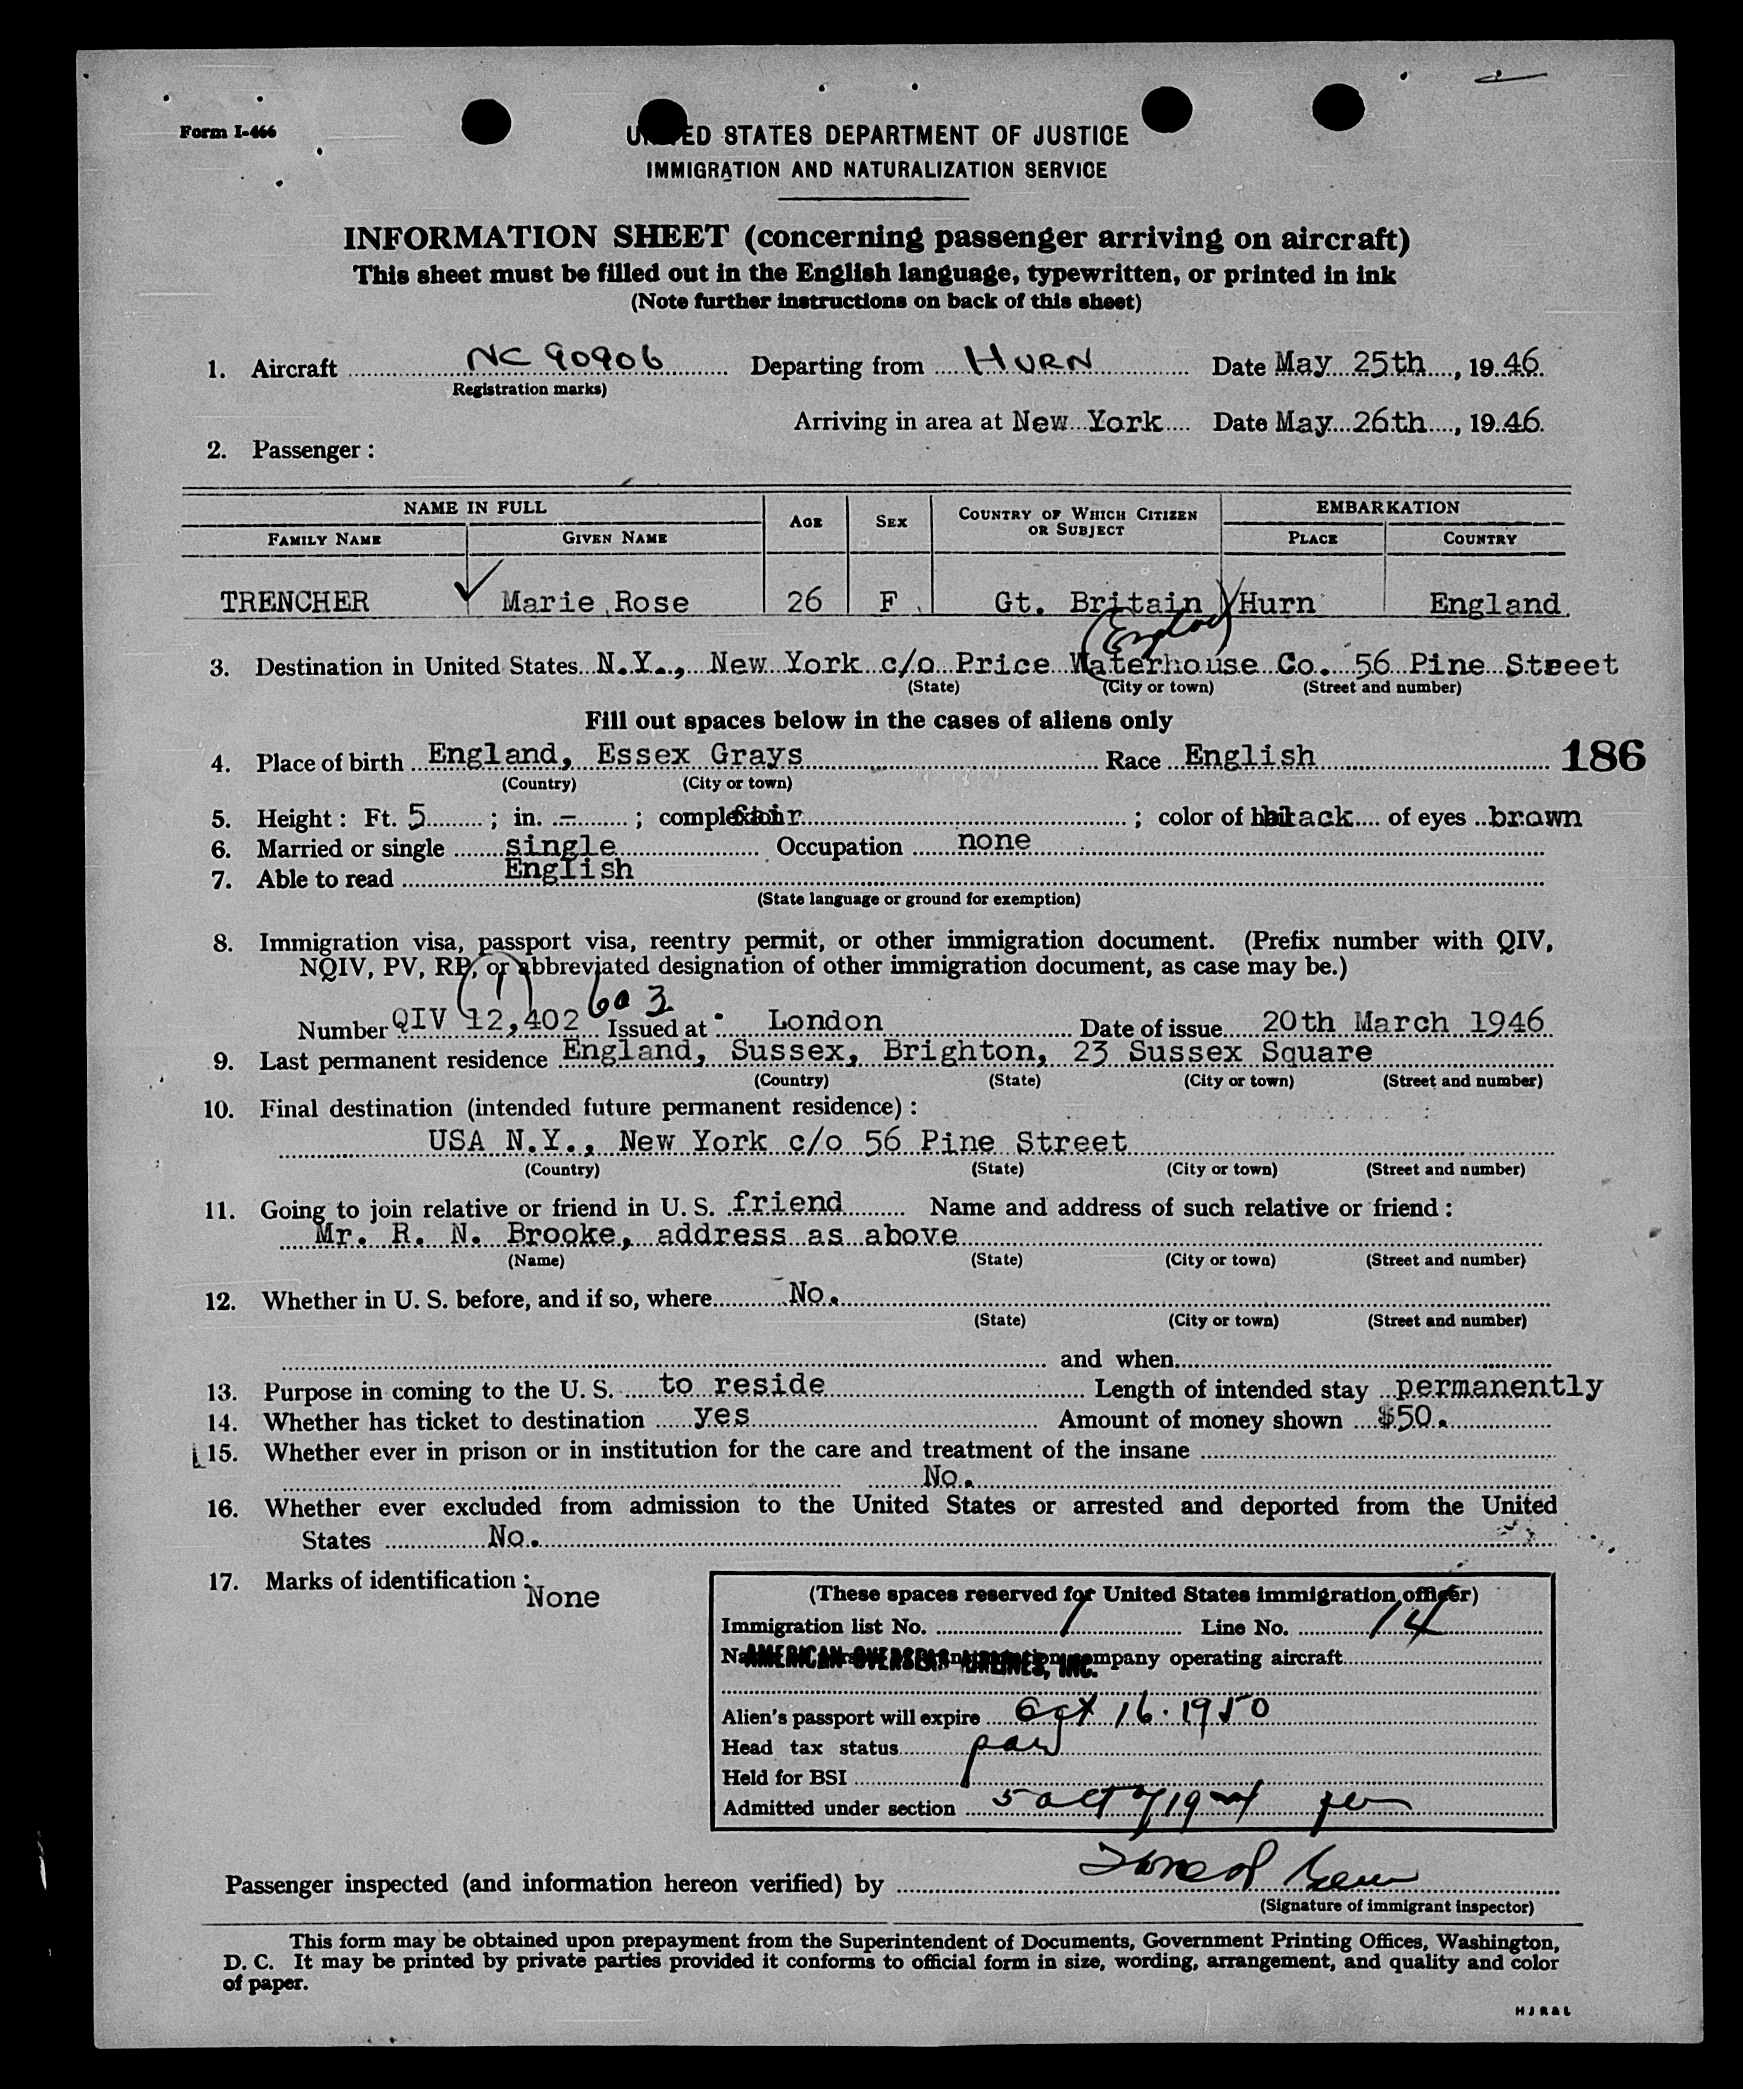 Form I-466
UNITED STATES DEPARTMENT OF JUSTICE
IMMIGRATION AND NATURALIZATION SERVICE
INFORMATION SHEET (concerning passenger arriving on aircraft)
This sheet must be filled out in the English language, typewritten, or printed in ink
(Note further instructions on back of this sheet)
1. Aircraft NC 90906 Departing from HURN Date May 25th, 19 46
Registration marks)
Arriving in area at New York Date May 26th, 19 46.
2. Passenger :
NAME IN FULL AGE SEX COUNTRY OF WHICH CITIZEN OR SUBJECT EMBARKATION
FAMILY NAME GIVEN NAME PLACE COUNTRY
TRENCHER Marie Rose 26 F Gt. Britain Hurn England.
3. Destination in United States N.Y., New York c/o Price Waterhouse Co. 56 Pine Street
(State) (City or town) (Street and number)
Fill out spaces below in the cases of aliens only
4. Place of birth England, Essex Grays Race English 186
(Country) (City or town)
5. Height : Ft. 5 ; in. - ; complexion fair ; color of hair black of eyes brown
6. Married or single single Occupation none
7. Able to read English
(State language or ground for exemption)
8. Immigration visa, passport visa, reentry permit, or other immigration document. (Prefix number with QIV,
NQIV, PV, RP, or abbreviated designation of other immigration document, as case may be.)
603
Number QIV 12,402 Issued at London Date of issue 20th March 1946
9. Last permanent residence England, Sussex, Brighton, 23 Sussex Square
(Country) (State) (City or town) (Street and number)
10. Final destination (intended future permanent residence) :
USA N.Y., New York c/o 56 Pine Street
(Country) (State) (City or town) (Street and number)
11. Going to join relative or friend in U. S. friend Name and address of such relative or friend :
Mr. R. N. Brooke, address as above
(Name) (State) (City or town) (Street and number)
12. Whether in U. S. before, and if so, where No.
(State) (City or town) (Street and number)
and when
13. Purpose in coming to the U. S. to reside Length of intended stay permanently
14. Whether has ticket to destination yes Amount of money shown $50.
15. Whether ever in prison or in institution for the care and treatment of the insane
No.
16. Whether ever excluded from admission to the United States or arrested and deported from the United
States No.
17. Marks of identification : None
(These spaces reserved for United States immigration officer)
Immigration list No. 1 Line No. 14
AMERICAN OVERSEAS AIRLINES, INC. company operating aircraft
Alien's passport will expire Oct 16. 1950
Head tax status
Held for BSI
Admitted under section 5 act of 1924
Passenger inspected (and information hereon verified) by
(Signature of immigrant inspector)
This form may be obtained upon prepayment from the Superintendent of Documents, Government Printing Offices, Washington,
D. C. It may be printed by private parties provided it conforms to official form in size, wording, arrangement, and quality and color
of paper.
H J R & L